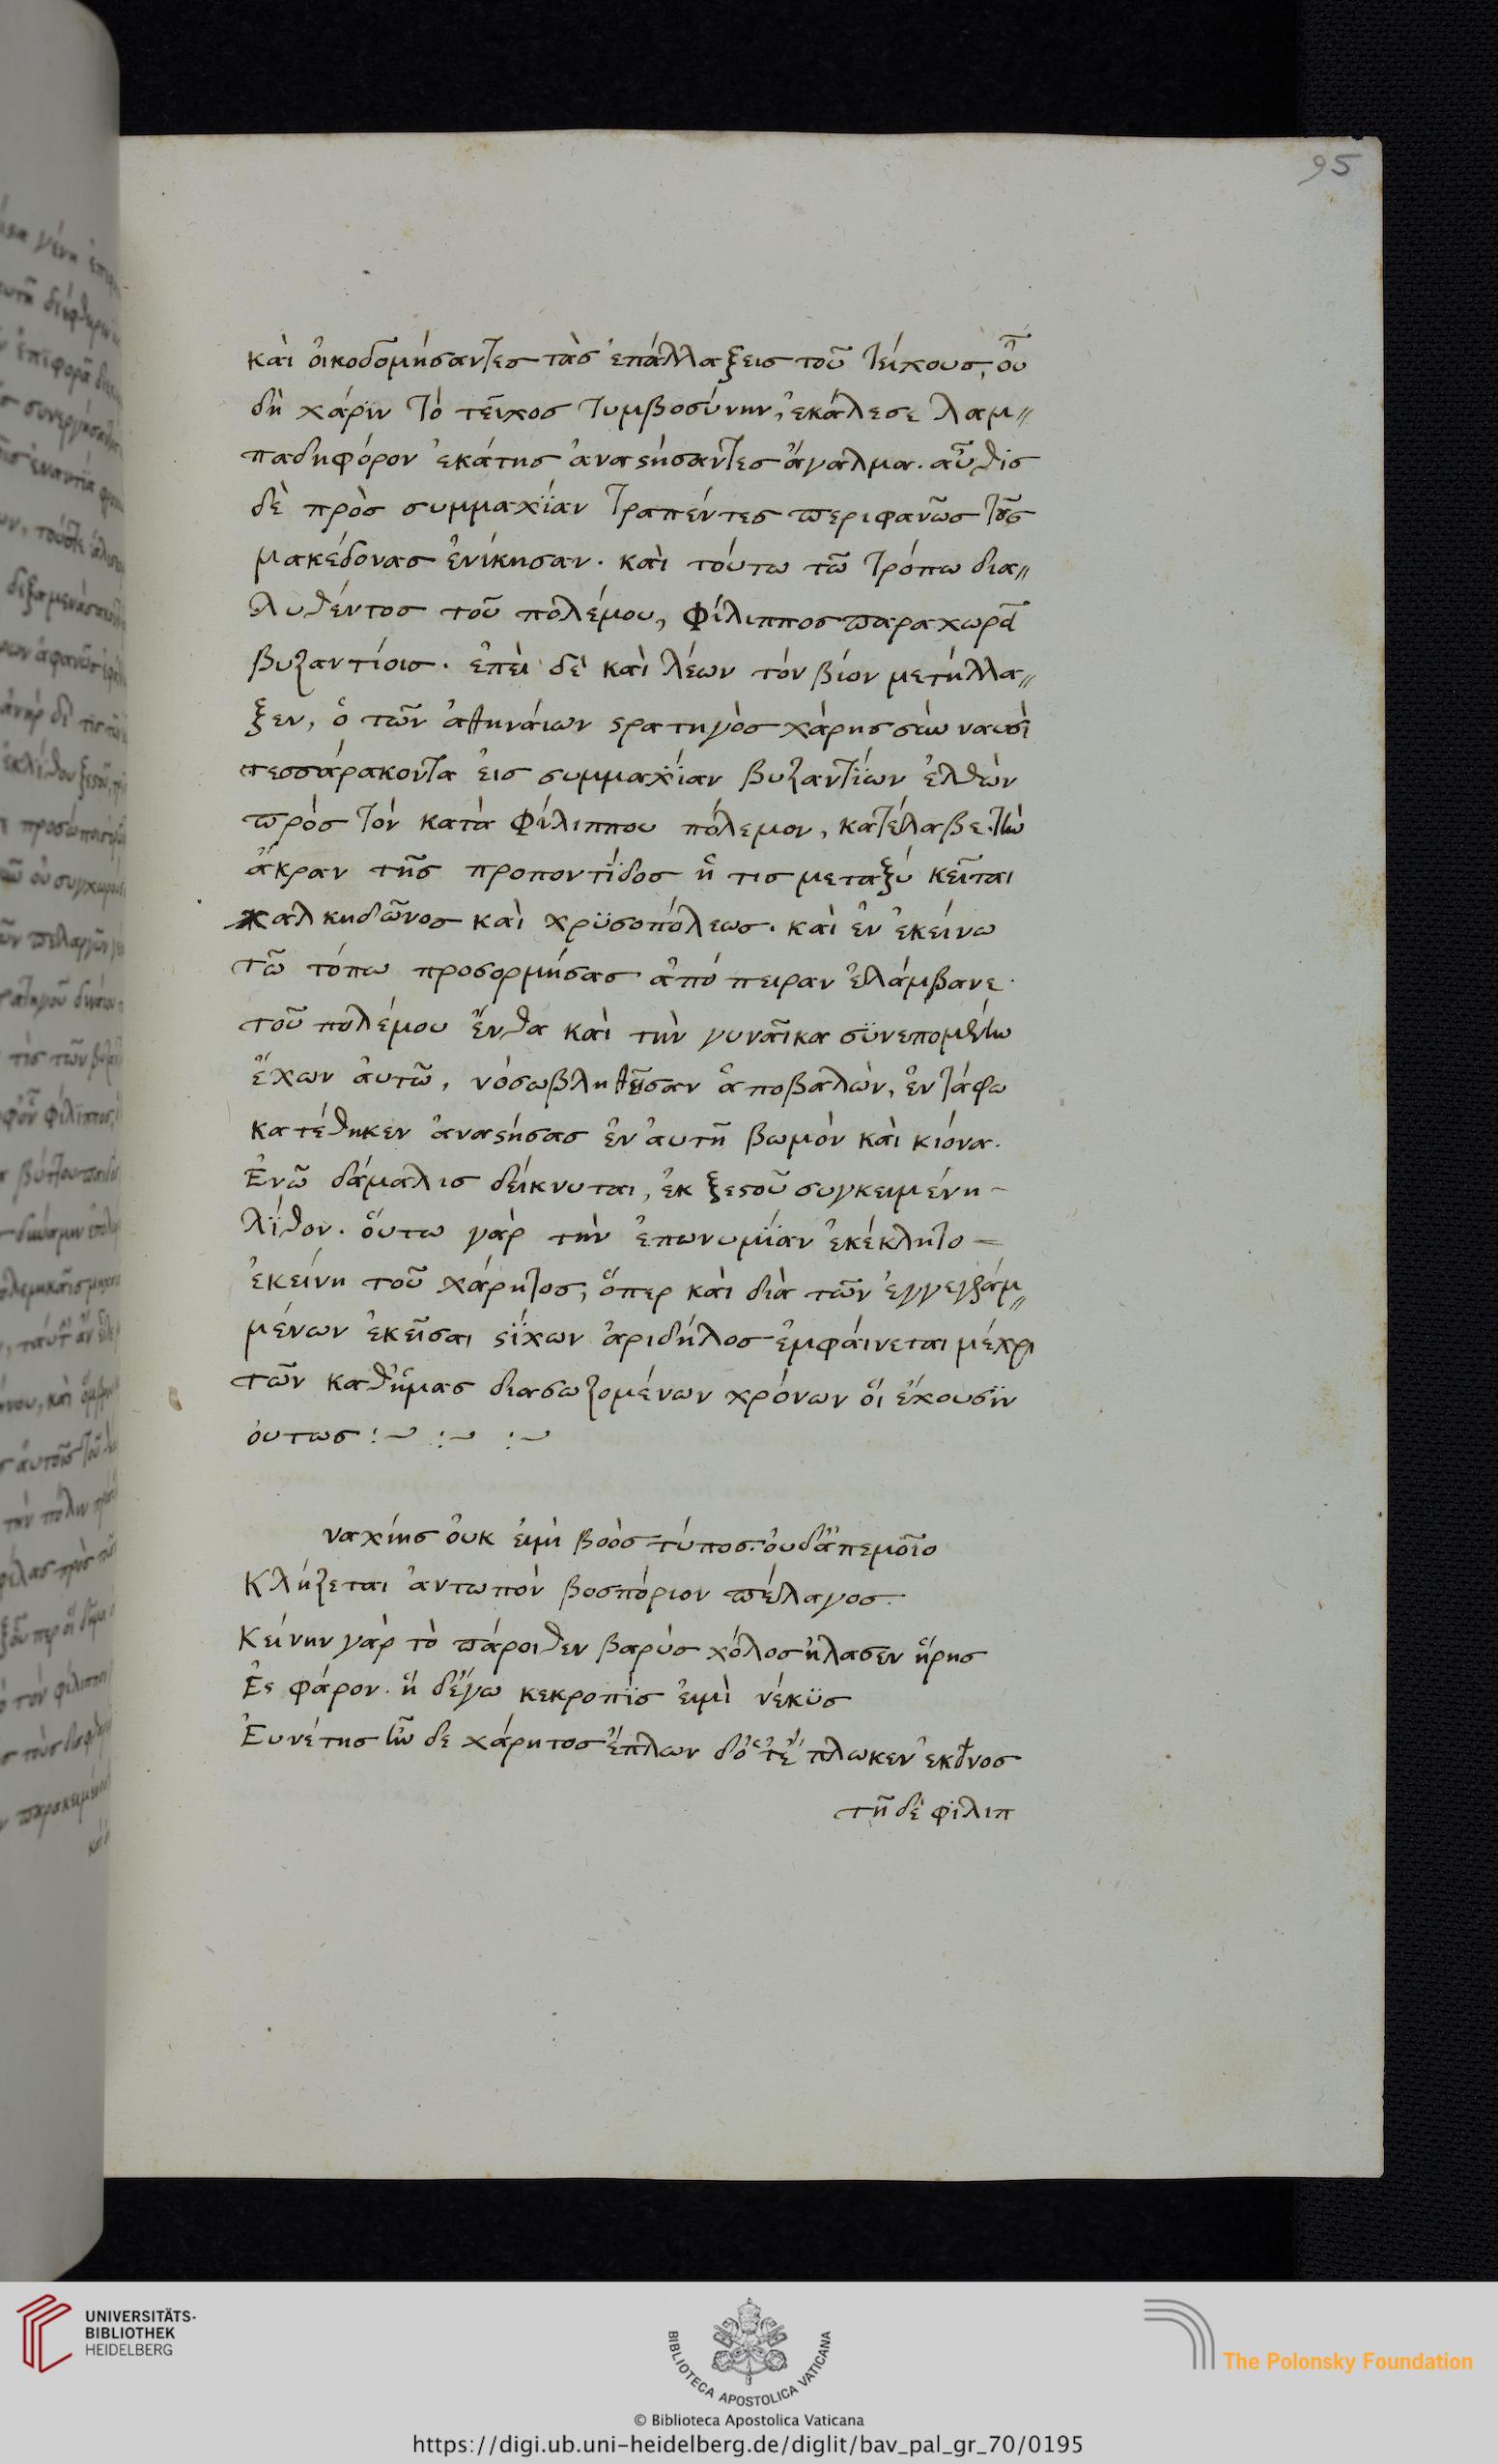 95
καὶ ὀικοδομήσαντες τὰς ἐπάλλαξεις τοῦ τείχους, οὗ
δὴ χάρϊν τὸ τεῖχος τυμβοσύνην, ἐκάλεσε λαμ〃
παδηφόρον ἑκάτης ἀναϛήσαντες ἄγαλμα. αὖθις
δὲ πρὸς συμμαχΐαν τραπέντες περιφανῶς τοὺς
μακέδονας ἐνίκησαν. καὶ τόυτω τῶ τρόπω δια〃
λυθέντος τοῦ πολέμου, Φίλιππος παραχωρεῖ
βυζαντίοις. ἐπεὶ δὲ καὶ λέων τὸν βίον μετήλλα〃
ξεν, ὁ τῶν ἀθηνάιων ϛρατηγὸς χάρης σὺν ναυσὶ
τεσσάρακοντα ἐις συμμαχΐαν βυζαντΐων ἐλθὼν
πρὸς τὸν κατὰ Φίλιππου πόλεμον, κατέλαβε τὴν
ἄκραν τῆς προποντΐδος ἥ τις μεταξὺ κεῖται
χαλκηδῶνος καὶ χρϋσοπόλεως. καὶ ἐν ἐκείνω
τῶ τόπω προσορμήσας ἀπό πειραν ἐλάμβανε
τοῦ πολέμου ἔνθα καὶ τὴν γυναῖκα σϋνεπομένην
ἔχων ἀυτῶ, νόσωβληθεῖσαν ἀποβαλὼν, ἐν τάφω
κατέθηκεν ἀναϛήσας ἐν ἀυτῆ βωμὸν καὶ κιόνα.
Ἐνῶ δάμαλις δείκνυται, ἐκ ξεϛοῦ συγκειμένη
λΐθον. ὅυτω γὰρ τὴν ἐπωνυμΐαν ἐκέκλητο
ἐκείνη τοῦ χάρητος, ὅπερ καὶ διὰ τῶν ἐγγεγραμ〃
μένων ἐκεῖσαι ϛΐχων ἀριδήλος ἐμφάινεται μέχρι
τῶν καθἡμας διασωζομένων χρόνων ὅι ἔχουσϊν
όυτως :~ :~ :~
ναχίης ὀυκ ἐιμὶ βοὸς τύπος. ὀυδἀπεμοῖο
Κλήζεται ἀντωπὸν βοσπόριον πέλαγος.
Κείνην γὰρ τὸ πάροιθεν βαρὺς χόλος ἤλασεν ἥρης
Ἐς φάρον. ἥ δἔγω κεκροπΐς ἐιμὶ νέκϋς
Ἐυνέτης ἦν δε χάρητος ἔπλων δ' ὅτἔ πλωκεν ἐκεῖνος
τῆ δὲ φΐλιπ
UNIVERSITÄTS-
BIBLIOTHEK
HEIDELBERG
BIBLIOTECA APOSTOLICA VATICANA
The Polonsky Foundation
© Biblioteca Apostolica Vaticana
https://digi.ub.uni-heidelberg.de/diglit/bav_pal_gr_70/0195